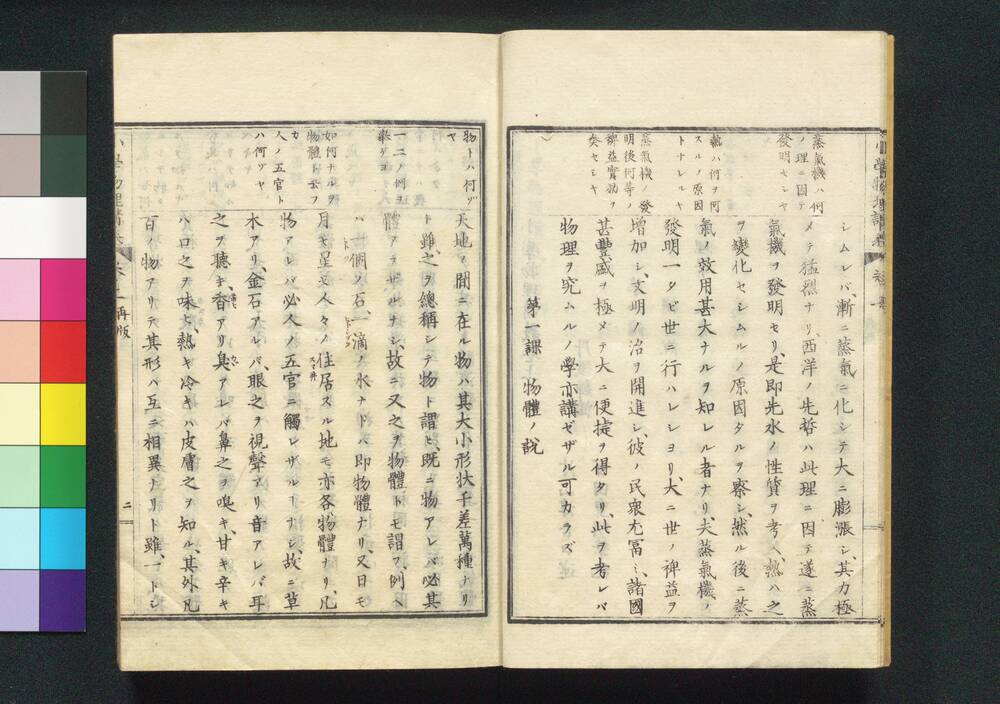 蒸氣機ハ何
ノ理ニ因テ
發明セシヤ
熱ハ何ヲ何
スルノ原因
トナレルヤ
蒸氣機ノ發
明後何等ノ
裨益實効ヲ
奏セシヤ
シムレバ、漸ニ蒸氣ニ化シテ大ニ膨漲シ、其力極
メテ猛烈ナリ、西洋ノ先哲ハ此理ニ因テ遂ニ蒸
氣機ヲ發明セリ、是即先水ノ性質ヲ考ヘ、熱ハ之
ヲ變化セシムルノ原因タルヲ察シ、然ル後ニ蒸
氣ノ效用甚大ナルヲ知レル者ナリ、夫蒸氣機ノ
發明一タビ世ニ行ハレショリ、大ニ世ノ裨益ヲ
增加シ、文明ノ治ヲ開進シ、彼ノ民衆尤冨ミ、諸國
甚豐盛ヲ極メテ大ニ便捷ヲ得タリ、此ヲ考レバ
物理ヲ究ムルノ學亦講ゼザル可カラズ
第一課 物體ノ說
物トハ何ゾ
ヤ
一二ノ例ヲ
擧ゲヨ
如何ナルヲ
物體ト云フ
カ
人ノ五官ト
ハ何ゾヤ
天地ノ間ニ在ル物ハ、其大小形狀千差萬種ナリ
ト雖、之ヲ總稱シテ物ト謂ヒ、既ニ物アレバ必其
體アラザルナシ、故ニ又之ヲ物體トモ謂フ、例ヘ
バ一個ノ石、一滴ノ水ナドハ即物體ナリ、又日モ
月モ星モ人々ノ住居スル地モ亦各物體ナリ、凡
物アレバ必人ノ五官ニ觸レザルーナシ、故ニ草
木アリ、金石アルバ、眼之ヲ視、聲アリ音アレバ耳
之ヲ聽キ、香アリ臭アレバ鼻之ヲ嗅キ、甘キ辛キ
ハ口之ヲ味ヒ、熱キ冷キハ皮膚之ヲ知ル、其外凡
百ノ物アリテ其形ハ互ニ相異ナリト雖、一トシ
二